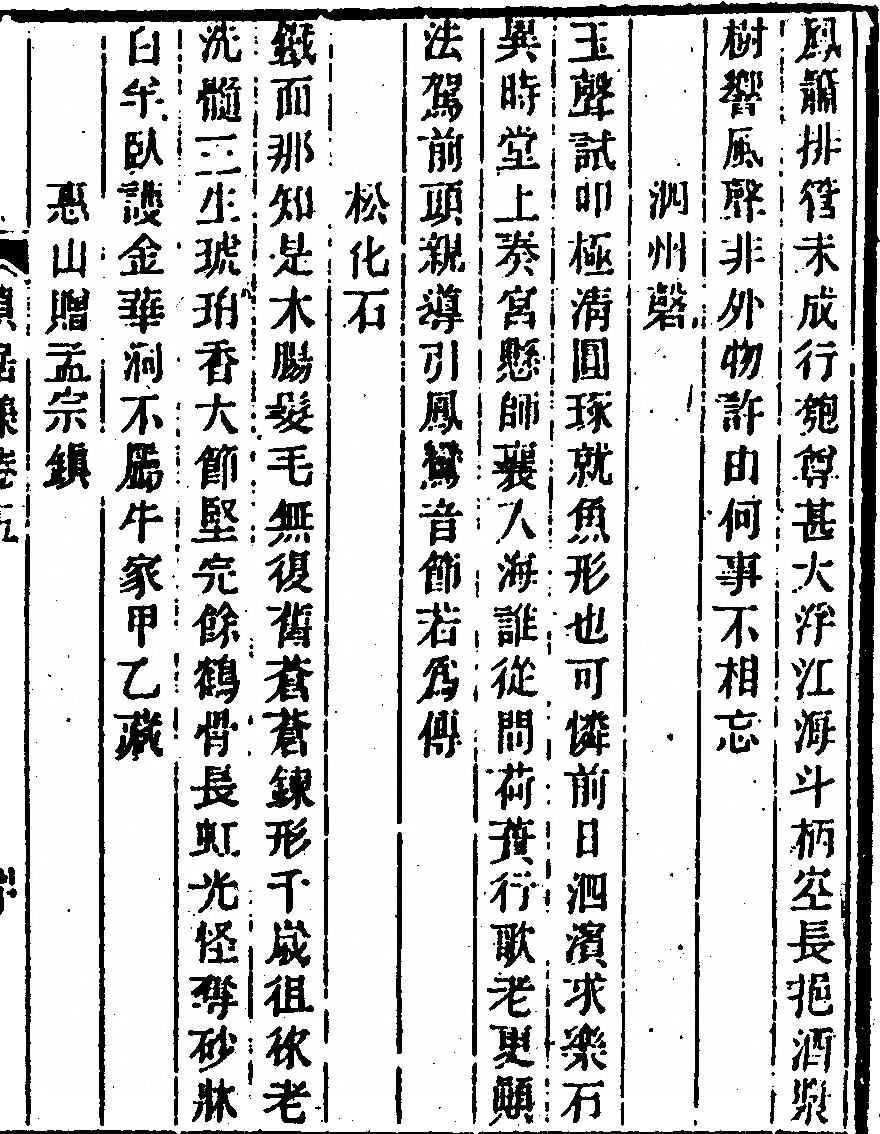 鳳簫排管未成行匏尊甚大浮江海斗柄空長挹酒漿
樹響風聲非外物許由何事不相忘
泗州磬
玉聲試叩極清圓琢就魚形也可憐前日泗濱求樂石
異時堂上奏宮懸師襄入海誰從問荷蕢行歌老更顛
法駕前頭親導引鳳鸞音節若爲傳
松化石
鐵面那知是木腸髮毛無復舊蒼蒼鍊形千歲徂徠老
洗髓三生琥珀香大節堅完餘鶴骨長虹光怪奪砂牀
白羊臥護金華洞不屬牛家甲乙藏
惠山贈孟宗鎮